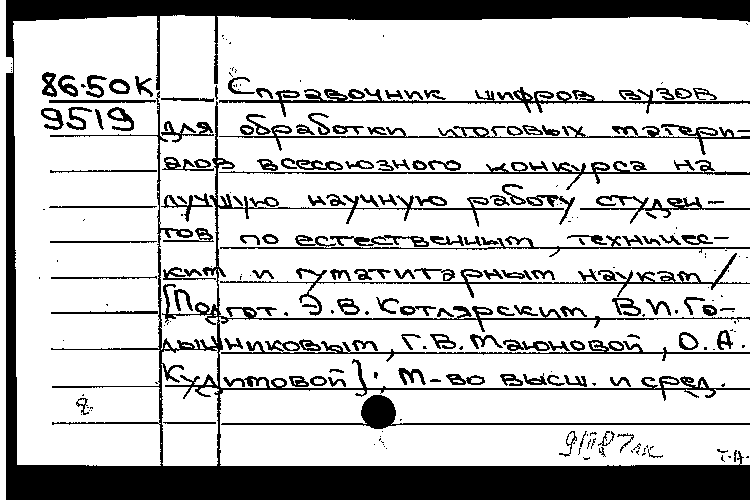 86-50К Справочник шифров вузов
9519 для обработки итоговых матери-
алов всесоюзного конкурса на
лучшую научную работу студен-
тов по естественным, техничес-
ким и гуматитарным наукам /
[Подгот. Э.В. Котлярским, В.И. Го-
лышниковым, Г.В. Маюновой, О.А.
Кудимовой]; М-во высш. и сред.